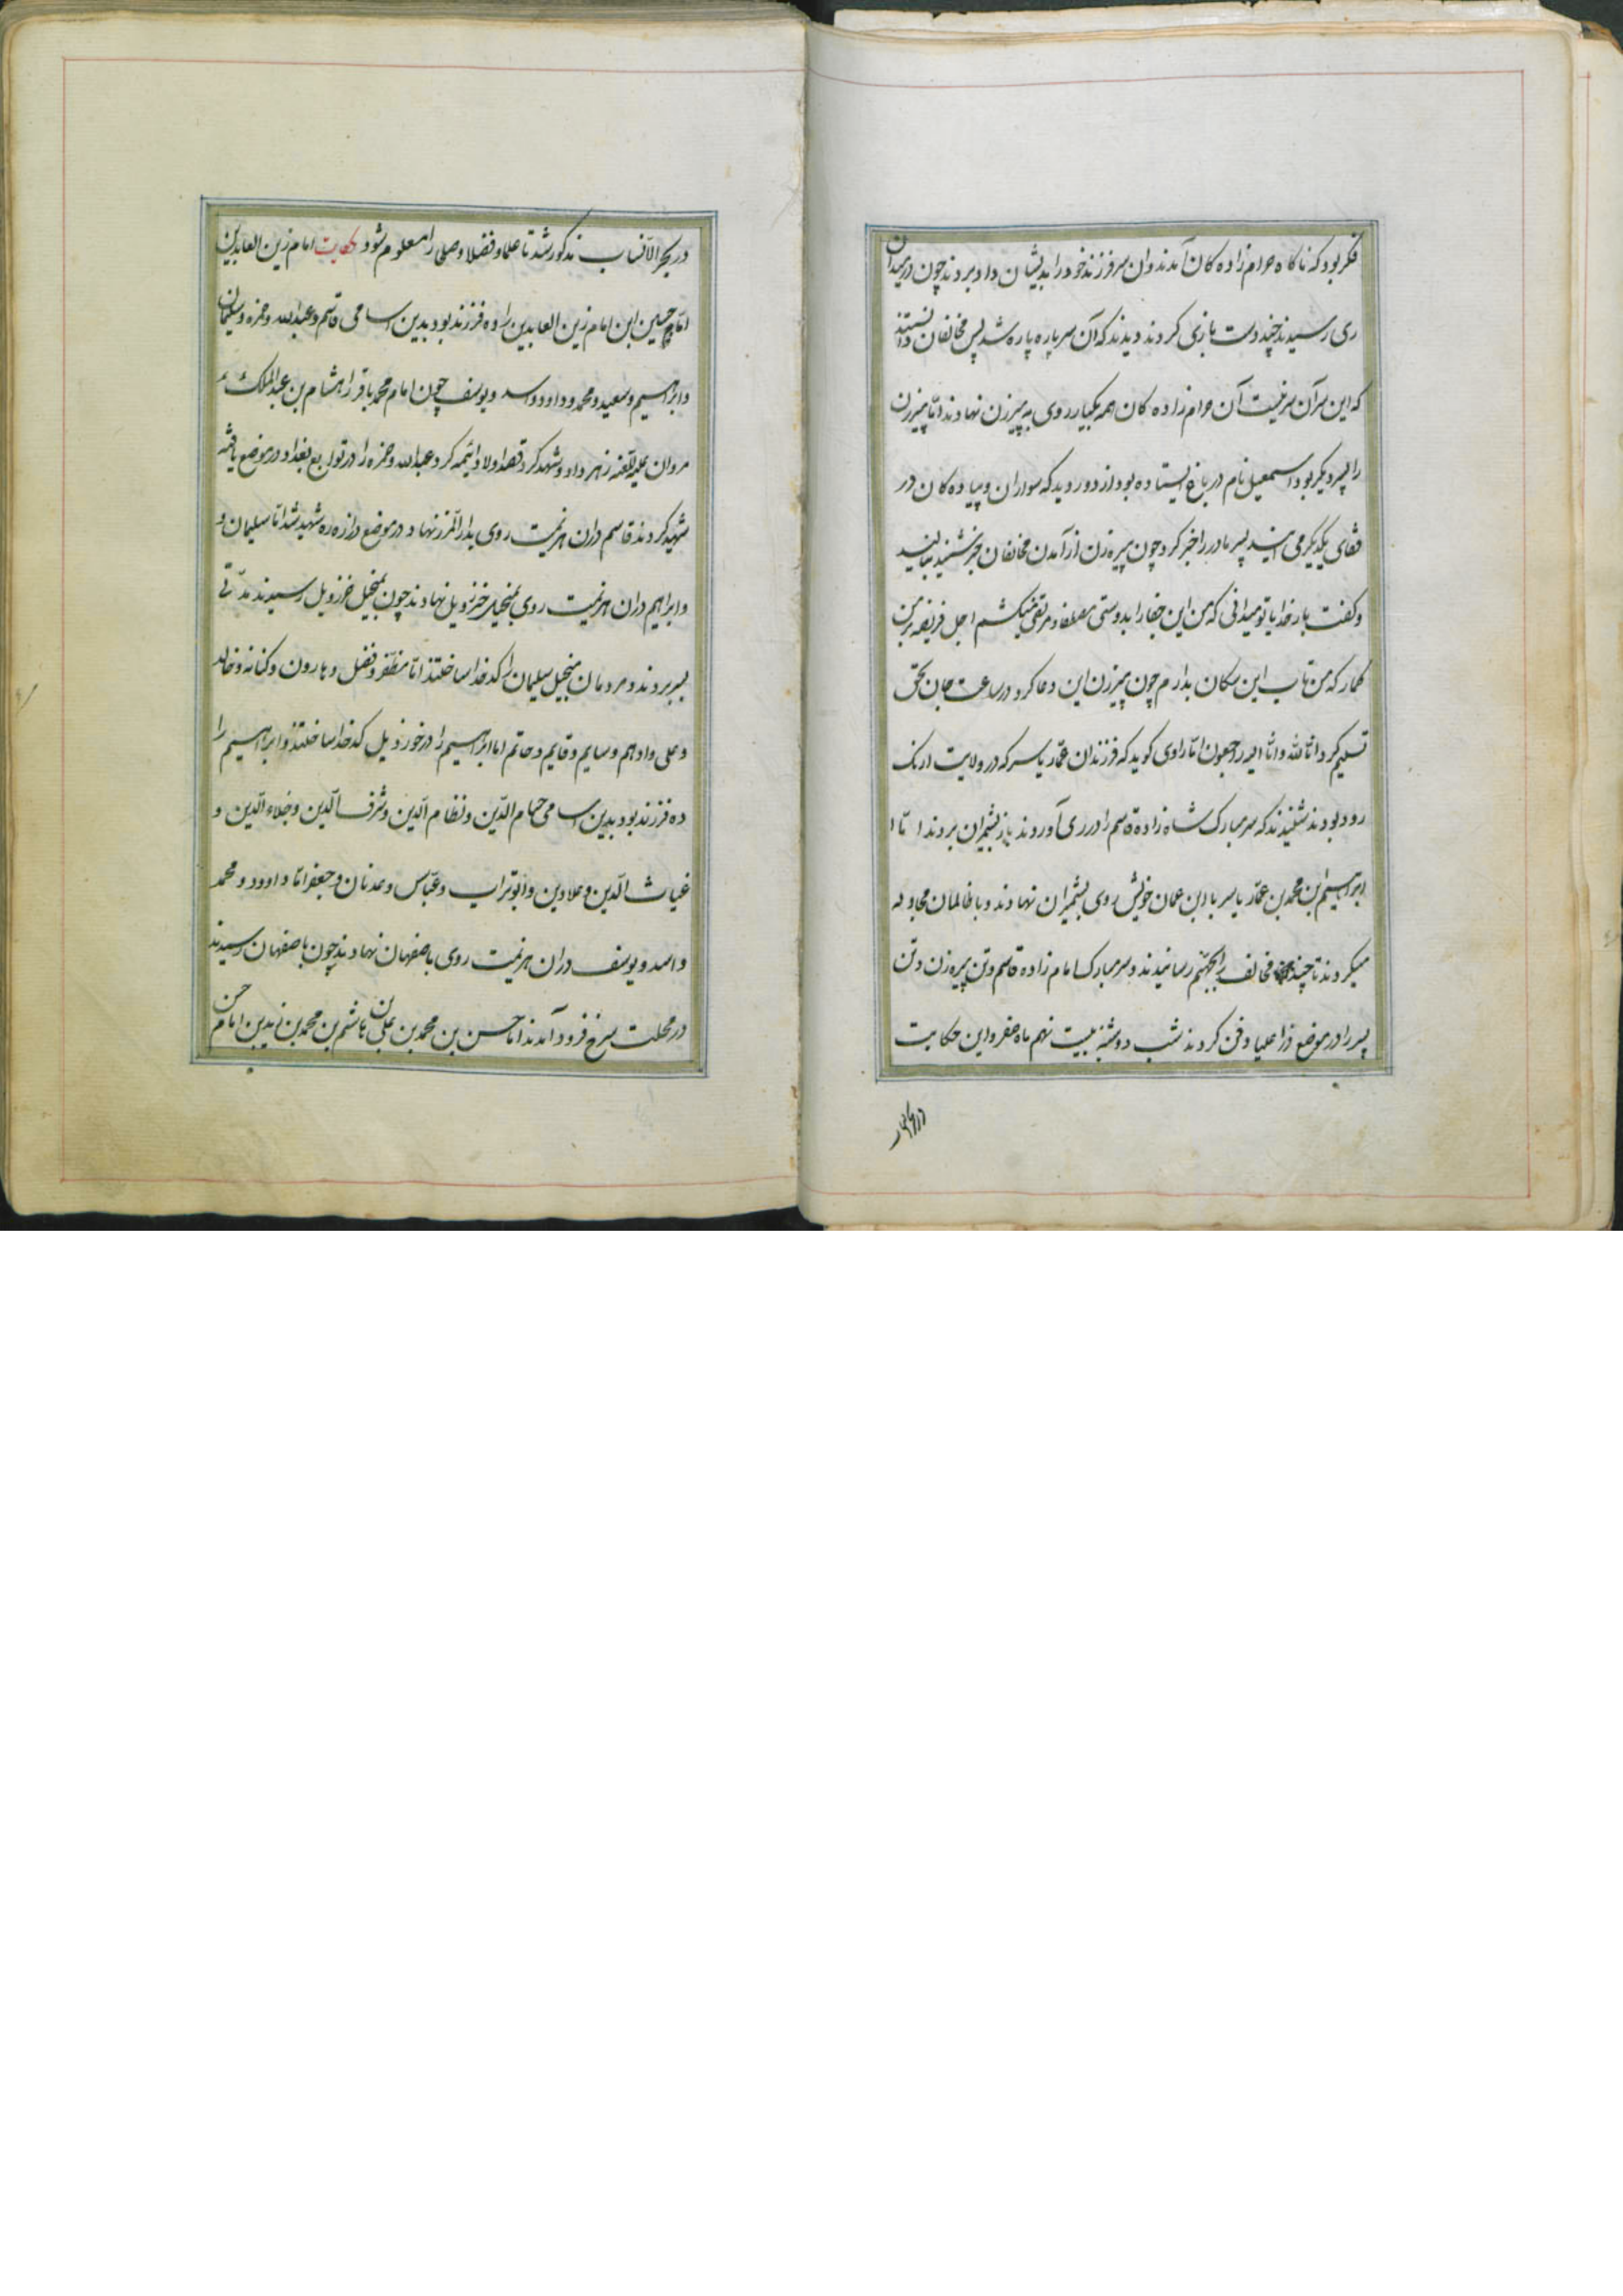 فکر بود که ناکاه حرام زاده کان آمدند وان سر فرزند خود را بدیشان داد بردند چون در میدان
ری رسیدند چند دست بازی کردند دیدند که آن سر پاره پاره شد پس مخالفان دانستند
که این سر آن سر نیست آن حرام زاده کان همه یکبار روی به پیرزن نهادند اما پیرزن
را پسر دیگر بود اسمعیل نام در باغ ایستاده بود از دور دید که سواران و پیاده کان در
قفای یکدیگر می آیند پسر مادر را خبر کرد چون پیره زن از آمدن مخالفان خبر شنید بنالید
و کفت بار خدایا تو میدانی که من این جفا را بدوستی مصطفی و مرتقی میکشم اجل فریضه بر من
کمار که من تاب این سکان ندارم چون پیرزن این دعا کرد در ساعت جان بحق
تسلیم کرد انا لله و انا الیه راجعون اما راوی کوید که فرزندان عمّار یاسر که در ولایت ارنک
رود بودند شنیدند که سر مبارک شاه زاده قاسم را در ری آوردند باز بشمیران بردند اما
ابراهیم ابن محمد بن عمّار یاسر با ابن عمان خویش روی بشمیران نهادند و با ظالمان مجادله
میکردند تا چند مخالف را بجهنّم رسانیدند و سر مبارک امام زاده قاسم و تن پیره زن و تن
پسر را در موضع دزا علیا دفن کردند شب دوشنبه بیست نهم ماه صفر و این حکایت
در بحر الانساب مذکور شد تا علما و فضلا و صلحی را معلوم شود حکایت امام زین العابدین
امام حسین ابن امام زین العابدین را ده فرزند بود بدین اسامی قاسم و عبدالله و حمزه و سلیمان
و ابراهیم و سعید و محمد و داوود و اسد و یوسف چون امام محمد باقر را هشام بن عبدالملک
مروان علیه لعنه زهر داد و شهید کرد قصد اولاد ائمه کرد عبدالله و حمزه را در توابع بغداد در موضع یافته
شهید کردند قاسم دران هزیمت روی بدار المرز نهاد و در موضع درازه ره شهید شد اما سلیمان و
و ابراهیم دران هزیمت روی بمنجیل خرزویل نهادند چون بمنجیل خرزویل رسیدند مدّتی
بسر بردند و مردمان منجیل سلیمان را کدخدا ساختند اما مظفر و فضل و هارون و کنانه و خالد
و علی و ادهم و سایم و قایم و حاتم اما ابراهیم را در خرزویل کدخدا ساختند و ابراهیم را
ده فرزند بود بدین اسامی حسام الدّین و نظام الدّین و شرف الدّین و جلاء الدّین و
غیاث الدّین و علادین و ابوتراب و عبّاس و عدنان و جعفر امّا داوود و محمد
و اسد و یوسف دران هزیمت روی باصفهان نهادند چون باصفهان رسیدند
در محلت سرخ فرود آمدند اما حسن بن محمد بن علی بن هاشم بن محمد بن زید بن امام حسن